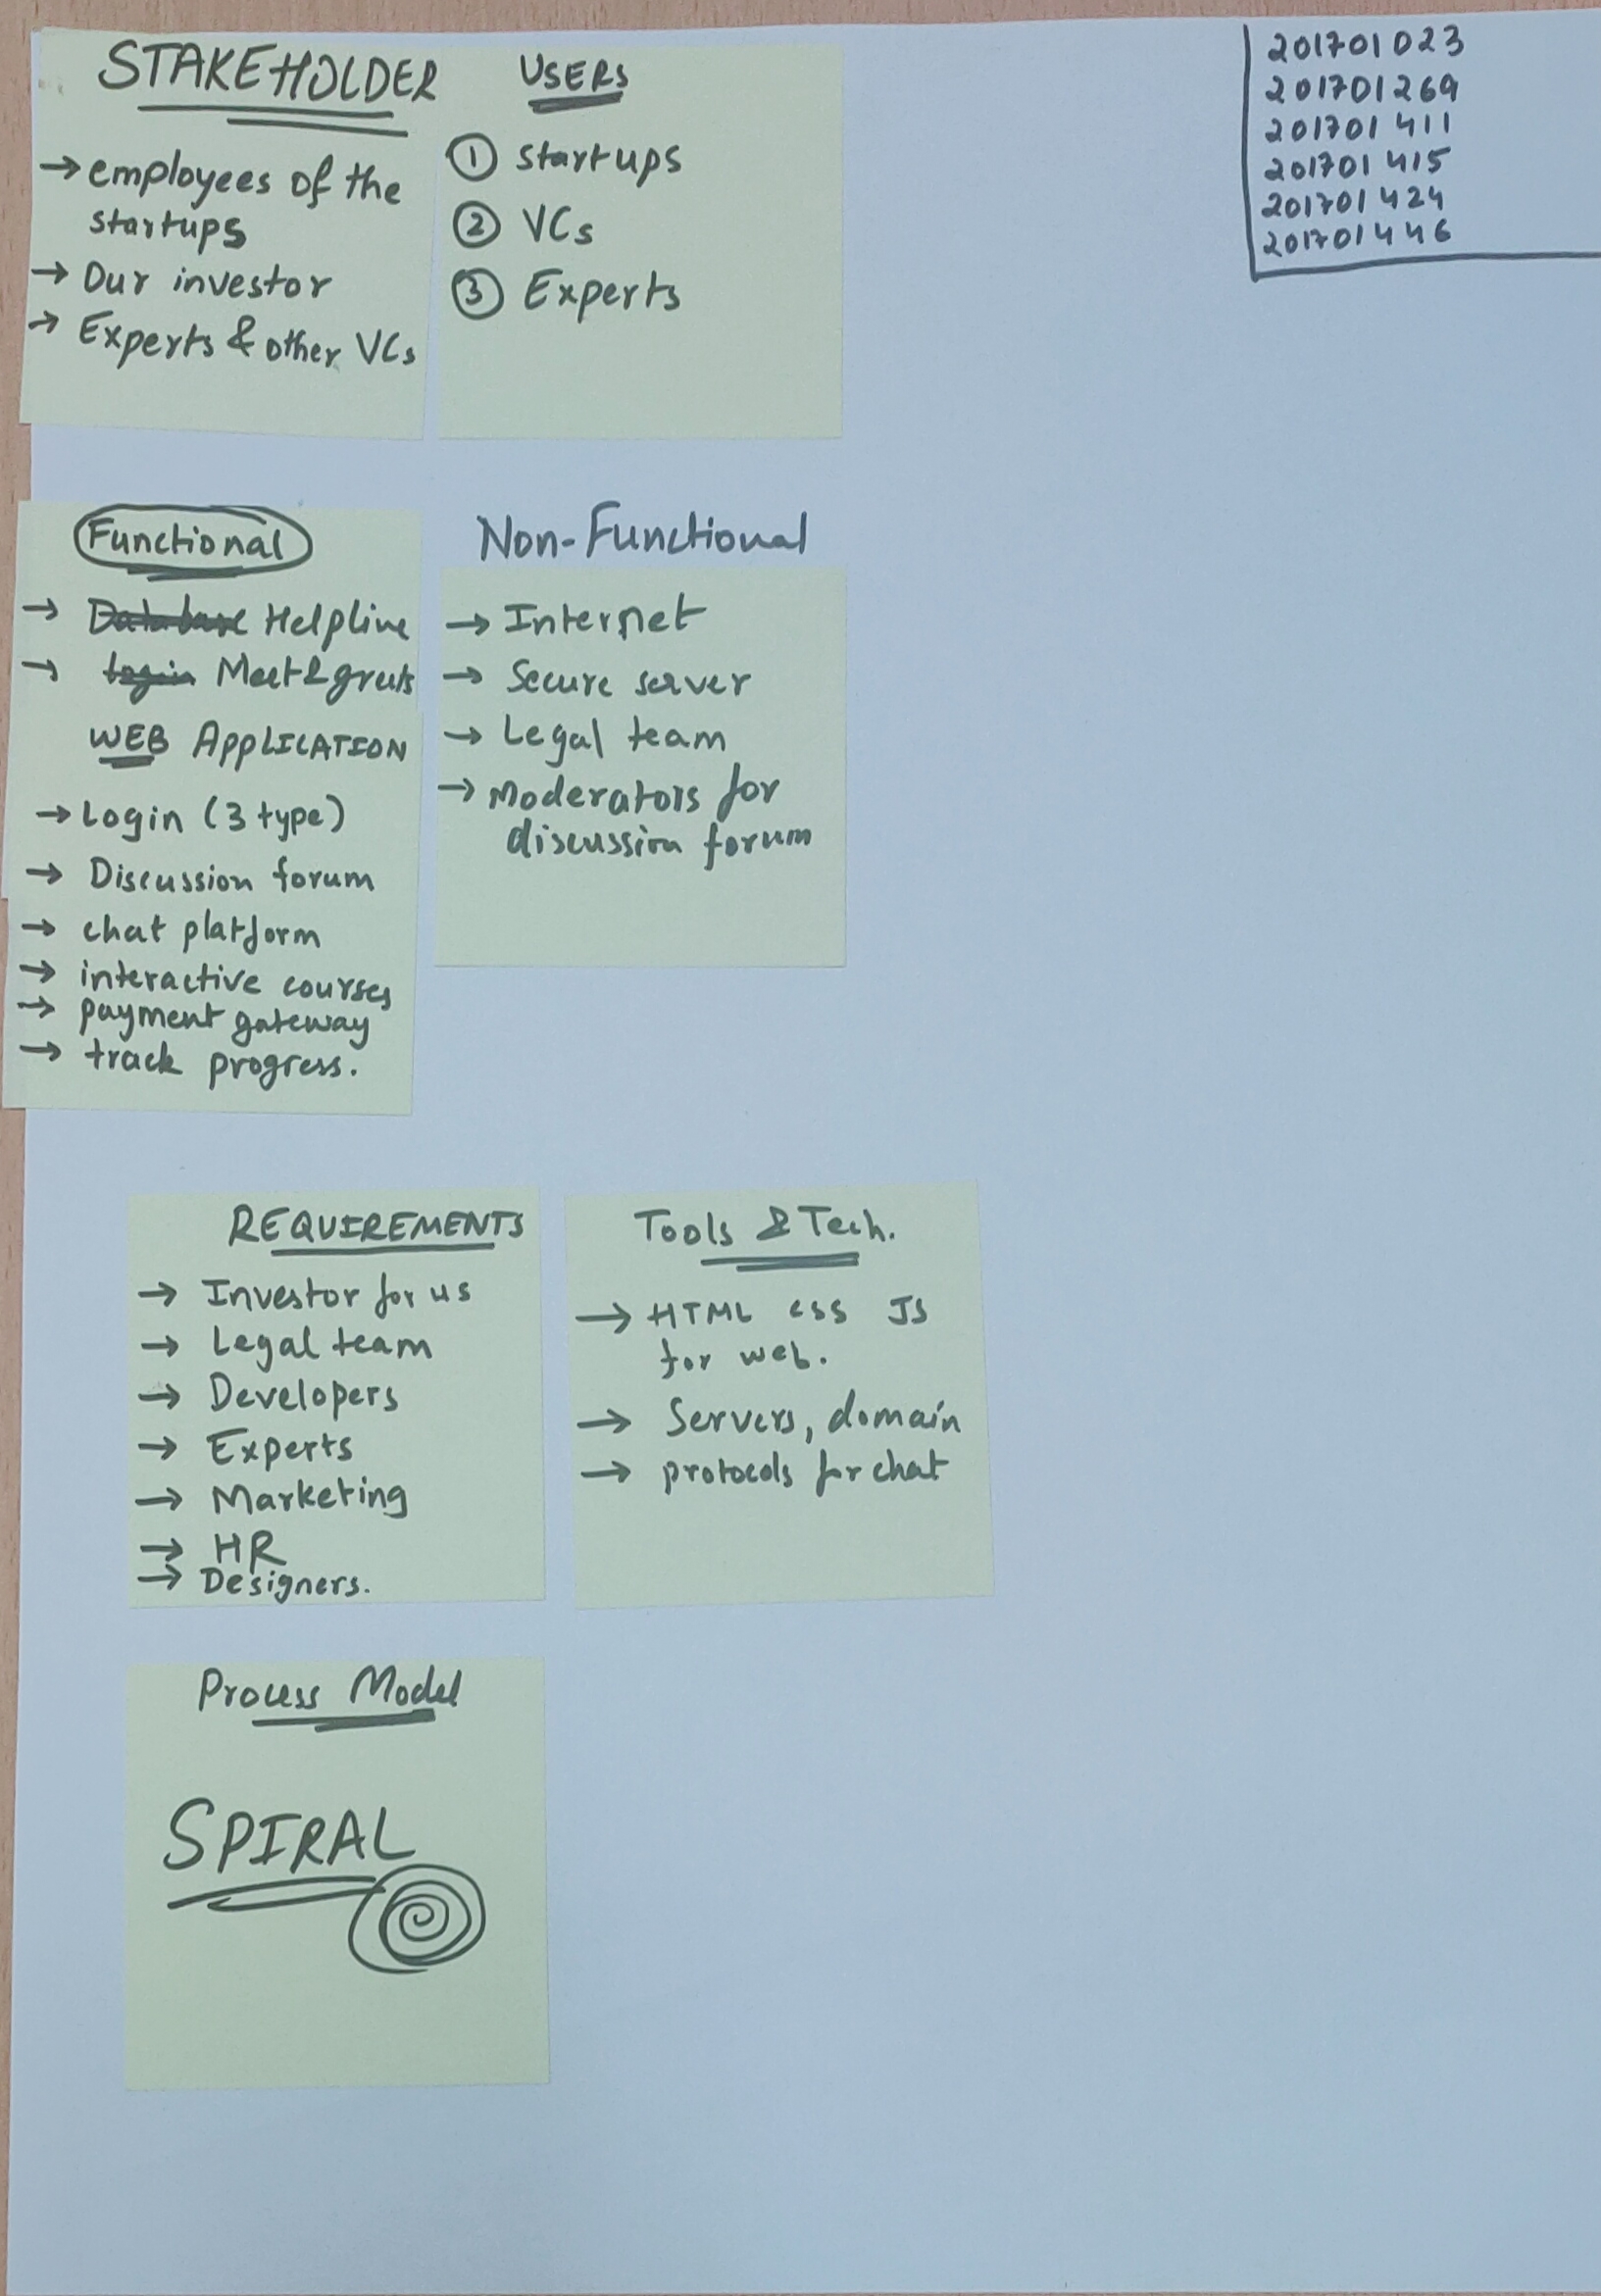 STAKEHOLDER
→ employees of the
startups
→ Our investor
→ Experts & other VCs
USERS
① startups
② VCs
③ Experts
201701023
201701269
201701411
201701415
201701424
201701446
Functional
→ Database Helpline
→ login Meet&greets
WEB APPLICATION
→ Login (3 type)
→ Discussion forum
→ chat platform
→ interactive courses
→ payment gateway
→ track progress.
Non-Functional
→ Internet
→ Secure server
→ Legal team
→ Moderators for
discussion forum
REQUIREMENTS
→ Investor for us
→ Legal team
→ Developers
→ Experts
→ Marketing
→ HR
→ Designers.
Tools & Tech.
→ HTML CSS JS
for web.
→ Servers, domain
→ protocols for chat
Process Model
SPIRAL